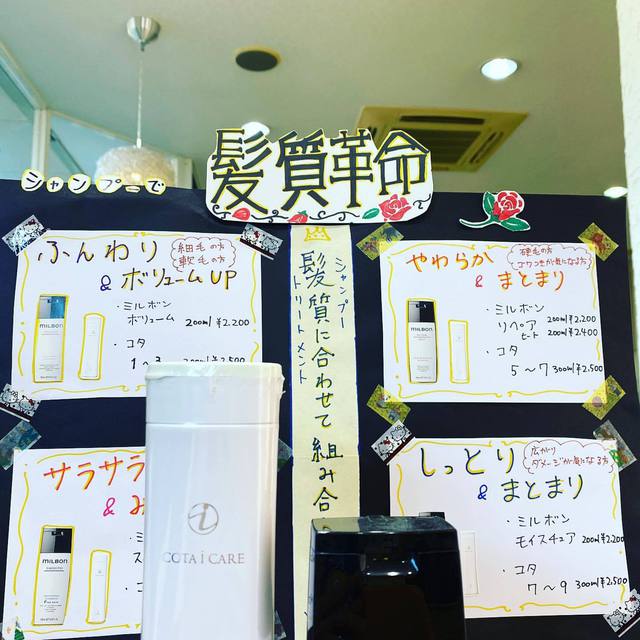 シャンプーで
髪質革命
ふんわり
& ボリュームUP
細毛の方
軟毛の方
・ミルボン
ボリューム 200ml ¥2.200
・コタ
1〜3 300ml ¥2.500
MILBON
シャンプー
トリートメント
髪質に合わせて組み合
やわらか
& まとまり
硬毛の方
ゴワつきが気になる方
・ミルボン
リペア 200ml ¥2.200
ヒート 200ml ¥2.400
・コタ
5〜7 300ml ¥2.500
MILBON
サラサラ
&
MILBON
しっとり
& まとまり
広がり
ダメージが気になる方
・ミルボン
モイスチュア 200ml ¥2.200
・コタ
7〜9 300ml ¥2.500
COTA i CARE